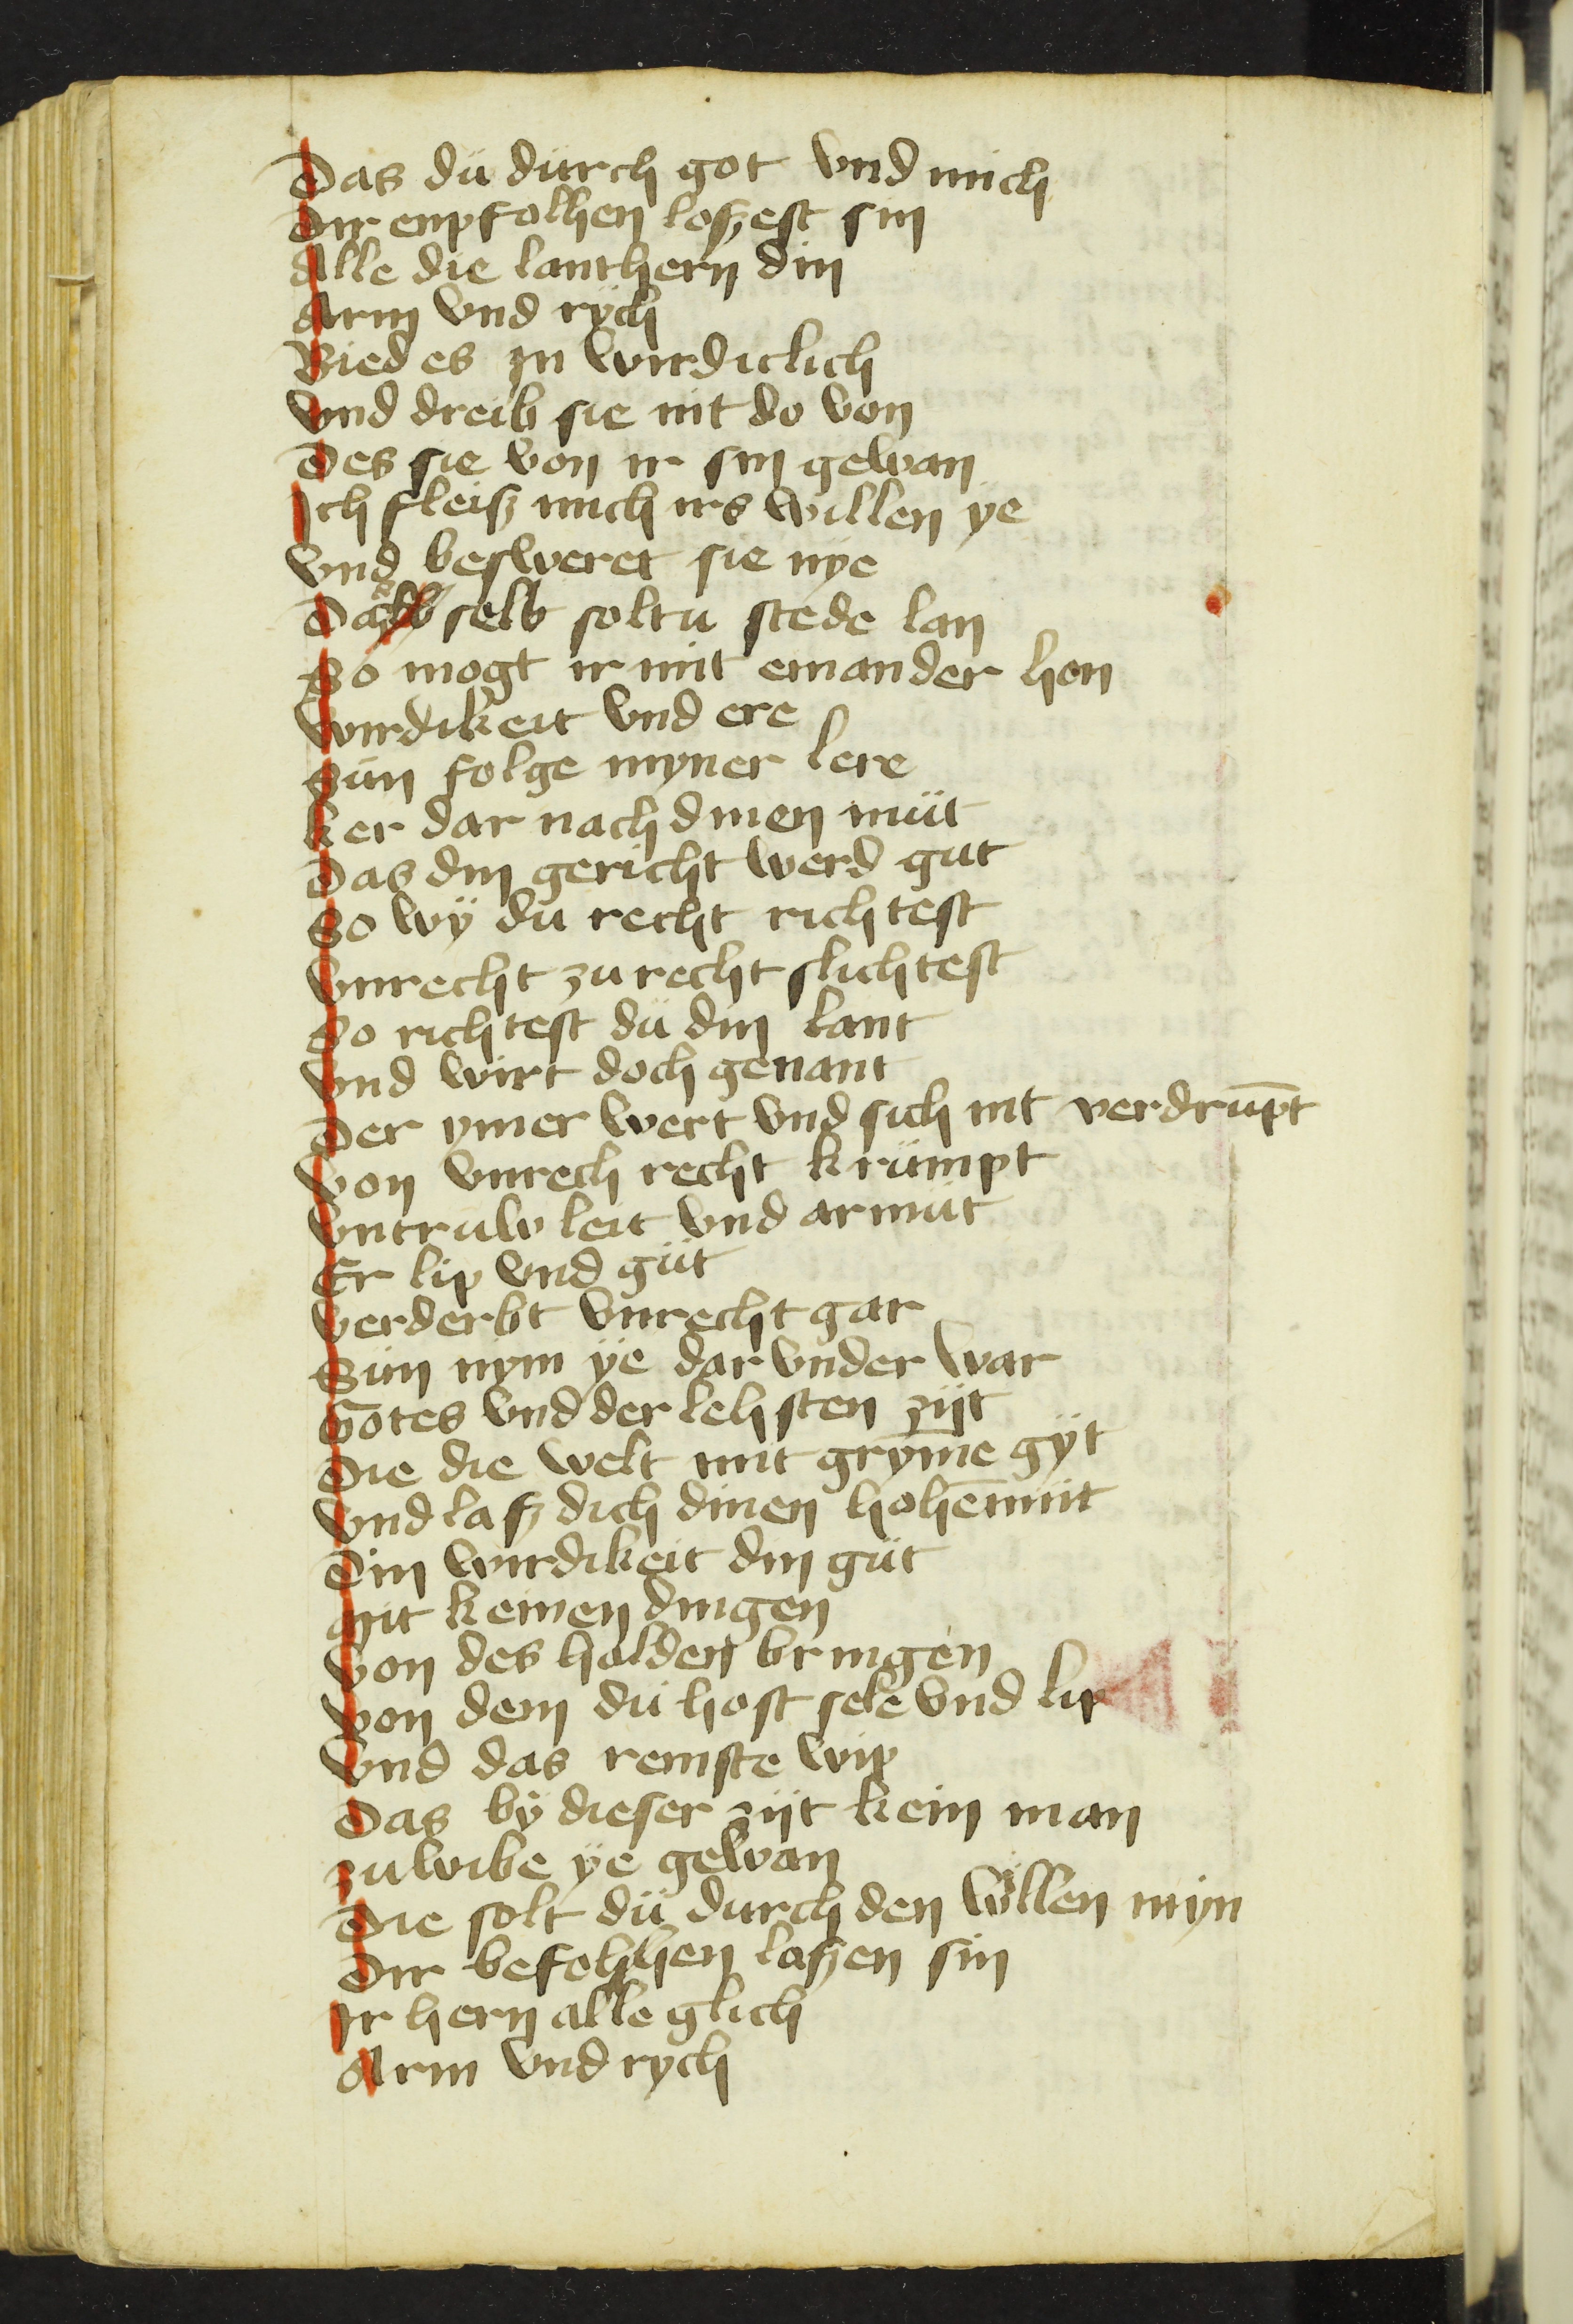 Das dü dürch got vnd mich
Dir enpfolhen loszest sin
Alle die lanthern din
Arm vnd rych
Bied es zu wirdiclich
Vnd dreib sie nit do von
Des sie von ir sin gewan
Ich fleisz mich irs willen ye
Vnd besweret sie nye
Das selb soltu stede lan
So mogt ir mit einander hon
Wirdikeit vnd ere
Sün folge myner lere
Ker dar nach dinen müt
Das din gericht werd gut
So wÿ du recht richtest
Vnrecht zu recht slichtest
So richtest dü din lant
Vnd wirt doch genant
Der ymer wert vnd sich nit verdrup̄t
Von vnrech recht krümpt
Vntruw leit vnd armüt
Er lip vnd güt
Verderbt vnrecht gar
Sün nym ÿe dar vnder war
Gotes vnd der lehsten zijt
Die die welt mit grym̄e gÿt
Vnd lasz dich dinen hohēmüt
Din wirdikeit din güt
Mit keinen dingen
Von des holden bringen
Von dem dü host sele vnd lip
Vnd das reinste wip
Das bÿ dieser zijt kein man
Zu wibe ÿe gewan
Die solt dü durch den willen mÿn
Dir befolhen laszen sin
Ir hern alle glich
Arm vnd rych